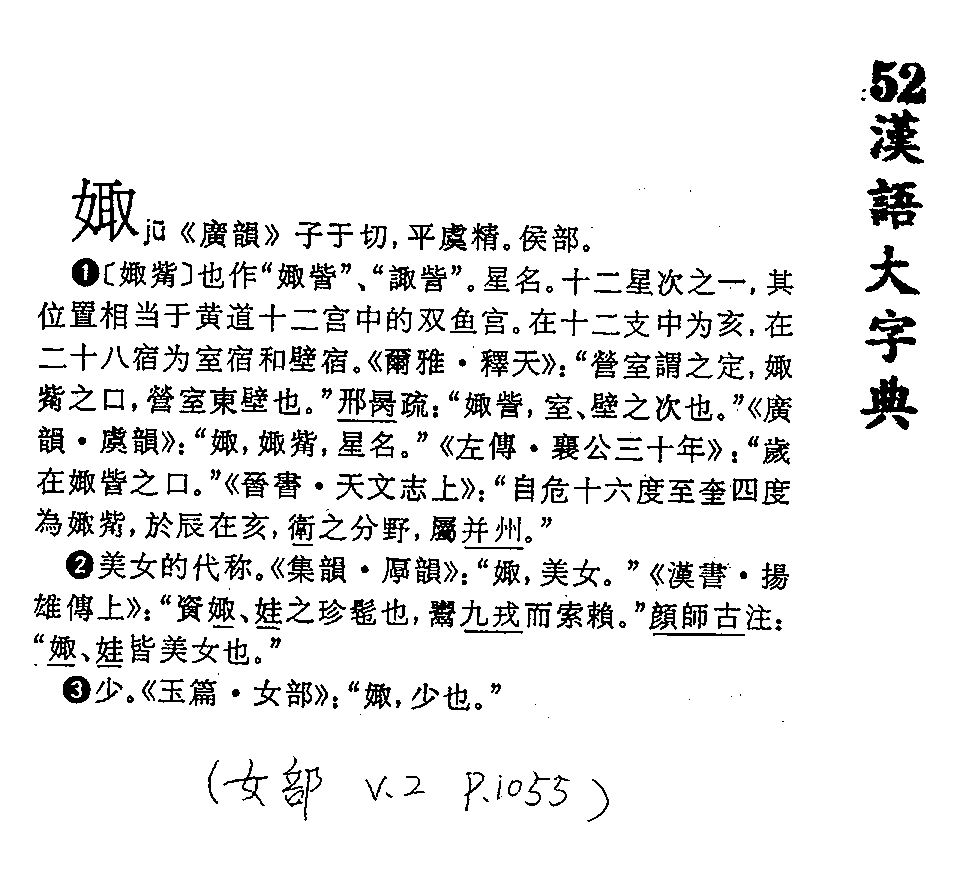 52漢語大字典
娵 jū《廣韻》子于切，平虞精。侯部。
❶〔娵觜〕也作“娵訾”、“諏訾”。星名。十二星次之一，其
位置相当于黄道十二宫中的双鱼宫。在十二支中为亥，在
二十八宿为室宿和壁宿。《爾雅·釋天》：“營室謂之定，娵
觜之口，營室東壁也。”邢昺疏：“娵訾，室、壁之次也。”《廣
韻·虞韻》：“娵，娵觜，星名。”《左傳·襄公三十年》：“歲
在娵訾之口。”《晉書·天文志上》：“自危十六度至奎四度
為娵觜，於辰在亥，衛之分野，屬并州。”
❷美女的代称。《集韻·厚韻》：“娵，美女。”《漢書·揚
雄傳上》：“資娵、娃之珍髢也，鬻九戎而索賴。”顔師古注：
“娵、娃皆美女也。”
❸少。《玉篇·女部》：“娵，少也。”
（女部 V.2 P.1055）